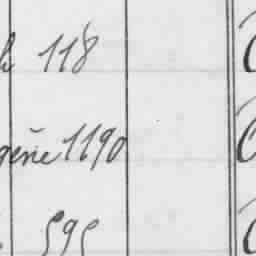 h 118
génie 1190
595